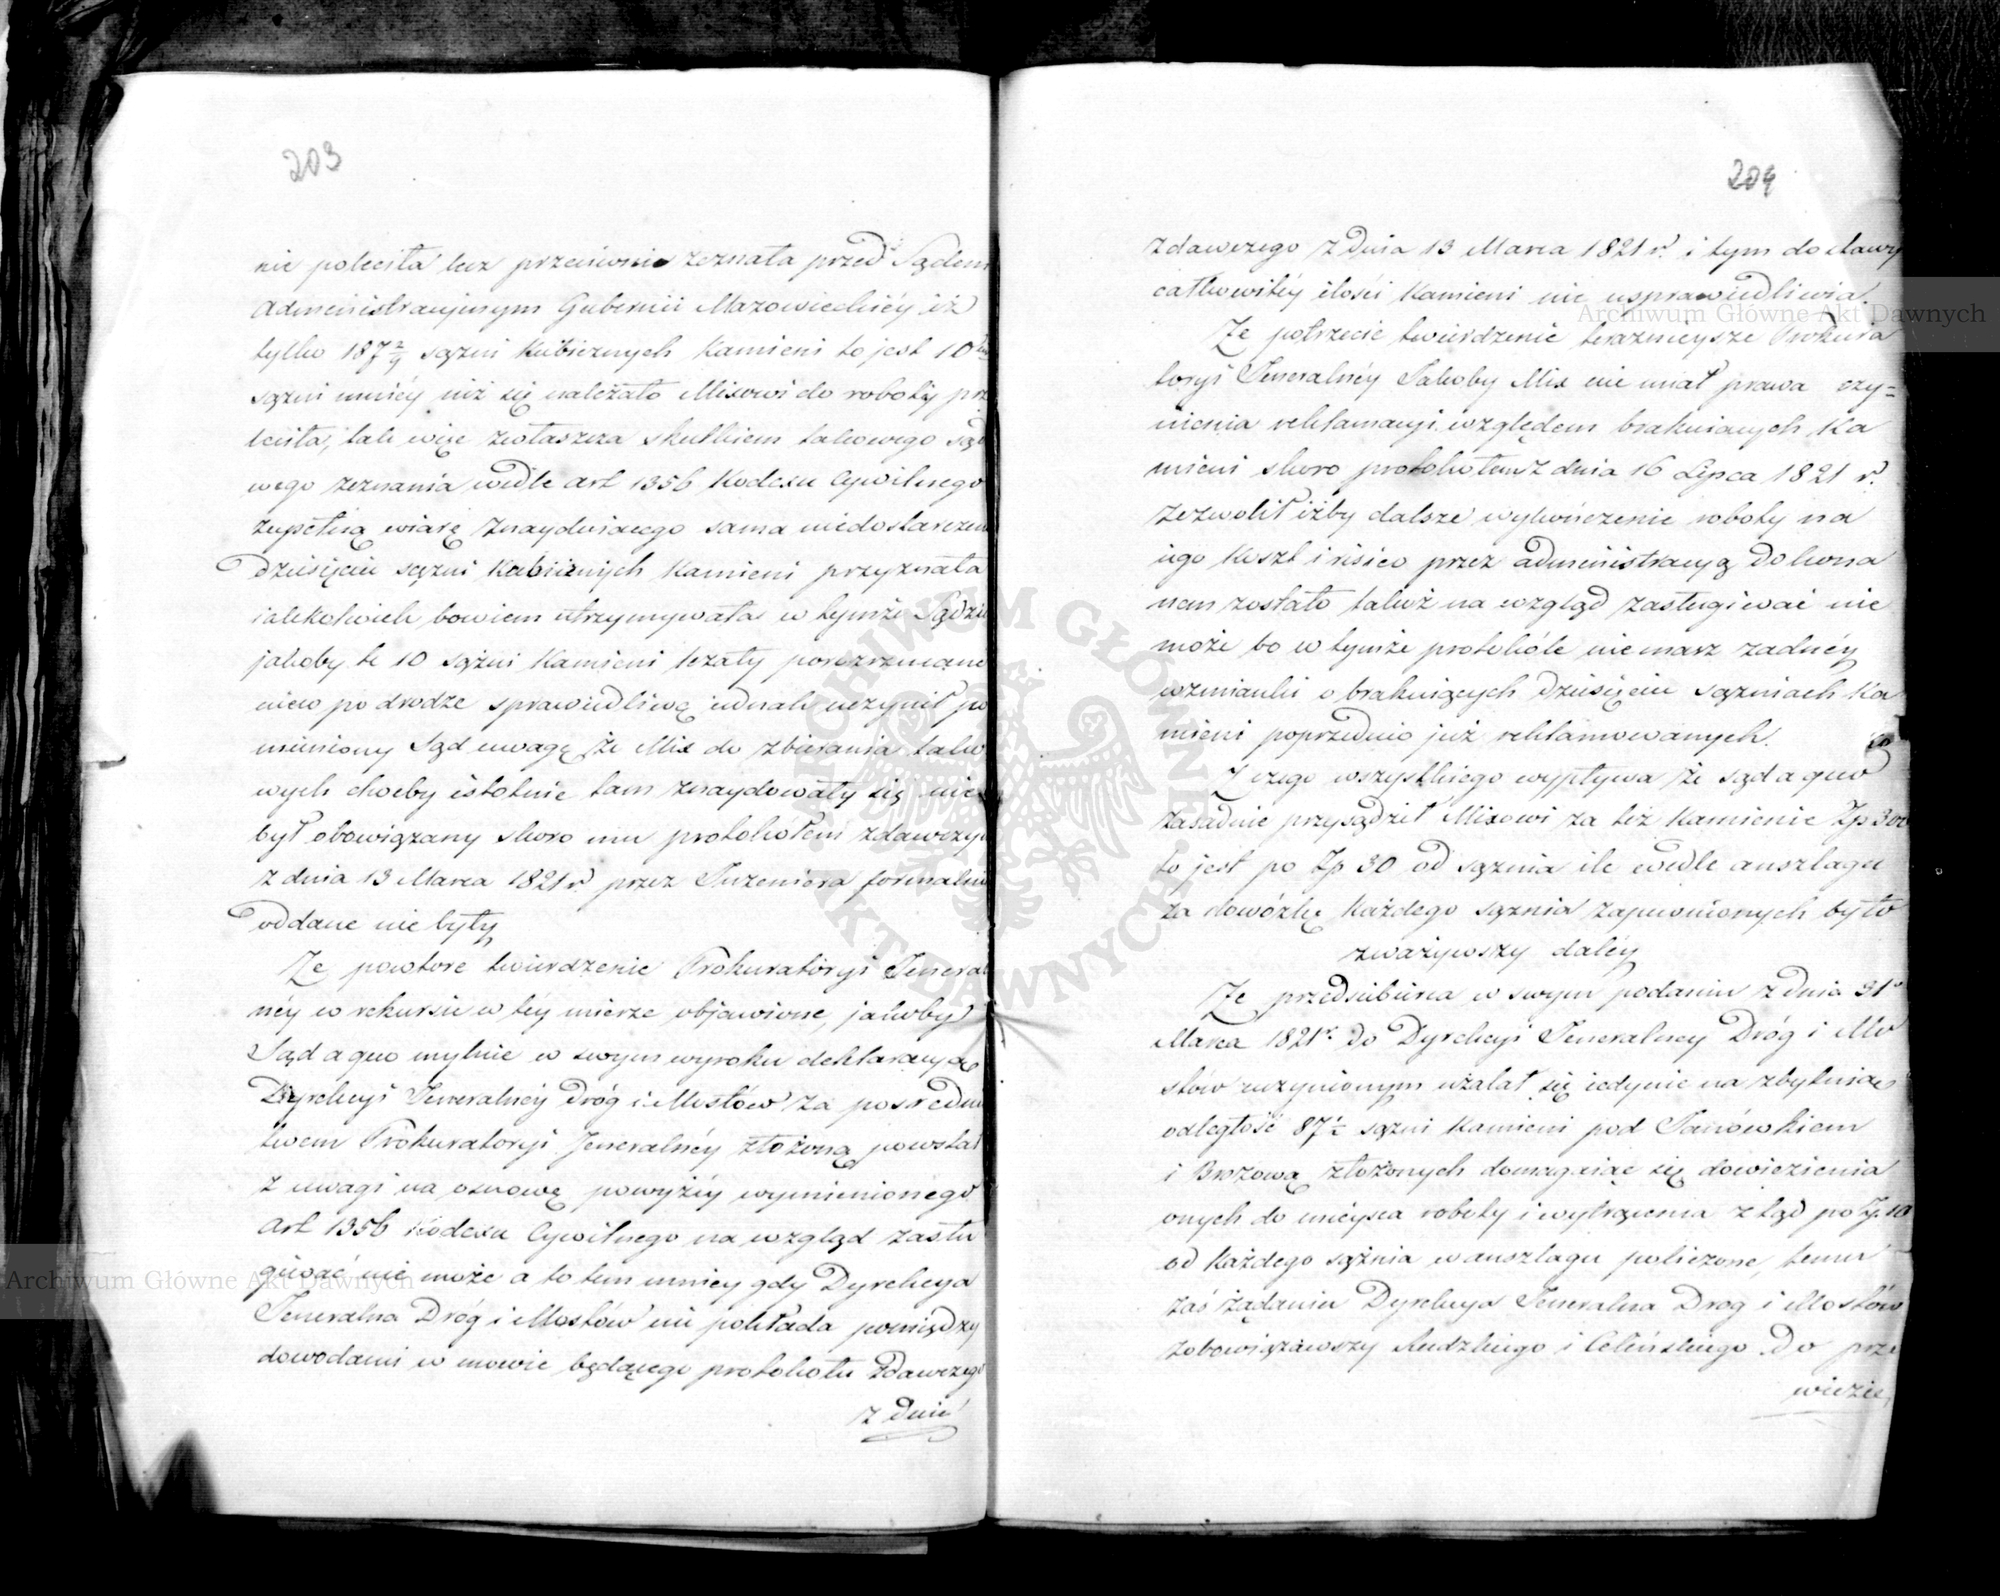 203
nie poleciła lecz przeciwnie zeznała przed Sądem
Administracyjnym Gubernii Mazowieckiéy iż
tylko 187 2/9 sążni Kubicznych Kamieni to jest 10
sążni mniéy niż się należało Mixowi do roboty po
leciła, tak więc zwłaszcza skutkiem takowego Sądo
wego zeznania wedle Art 1356 Kodexu Cywilnego
zupełną wiarę znayduiącego sama niedostarczenie
dziesięciu sążni Kubicznych Kamieni przyznała
iakkolwiek bowiem utrzymywała w tymże Sądzie
jakoby te 10 sążni Kamieni leżały porozrzucane
nieco po drodze sprawiedliwą iednak uczynił po
mieniony Sąd uwagę że Mix do zbierania tako
wych choćby istotnie tam znaydowały się nie
był obowiązany skoro mu protokółem zdawczym
z dnia 13 Marca 1821 r przez Inżeniera formalnie
oddane nie były
Że powtóre twierdzenie Prokuratoryi Jeneral
néy w rekursie w téy mierze objawione, jakoby
Sąd a quo mylnie w swym wyroku deklaracyą
Dyrekcyi Jeneralnéy Dróg i Mostów za pośrednic
twem Prokuratoryi Jeneralnéy złożoną powstał
z uwagi na osnowę powyżéy wymienionego
Art 1356 Kodexu Cywilnego na wzgląd zasłu
giwać nie może a to tem mniey gdy Dyrekcya
Jeneralna Dróg i Mostów nie pokłada pomiędzy
dowodami w mowie będącego protokołu Zdawczego
z dnia
204
zdawczego z dnia 13 Marca 1821 r. i tym dostawy
całkowitéy ilości Kamieni nie usprawiedliwia.
Że potrzecie twierdzenie teraznieysze Prokura
toryi Jeneralnéy Jakoby Mix nie miał prawa czy=
nienia reklamacyi względem brakuiących Ka
mieni skoro protokołem z dnia 16 Lipca 1821 r.
zezwolił iżby dalsze wykończenie roboty na
iego koszt i risico przez administracyą dokona
nem zostało takoż na wzgląd zasługiwać nie
może bo w tymże protokóle nie masz żadnéy
wzmianki o brakuiących dziesięciu sążniach Ka
mieni poprzednio już reklamowanych.
Z czego wszystkiego wypływa że sąd a quo
zasadnie przysądził Mixowi za też Kamienie Zp 300
to jest po Zp 30 od sążnia ile wedle anszlagu
za dowózkę Każdego sążnia zapewnionych było
zważywszy daléy
Że przedsiębiorca w swym podaniu z dnia 31o
Marca 1821 r. do Dyrekcyi Jeneralney Dróg i Mo
stów uczynionym użalał się iedynie na zbytnią
odległość 87 1/2 sążni Kamieni pod Janówkiem
i Brzozową złożonych domagaiąc się dowiezienia
onych do mieysca roboty i wytrącenia z tąd po Zp. 10
od Każdego sążnia w anszlagu policzone, temu
zaś żądaniu Dyrekcya Jeneralna Dróg i Mostów
zobowiązawszy Rudzkiego i Celińskiego do prze
wiezie
Archiwum Główne Akt Dawnych
Archiwum Główne Akt Dawnych
ARCHIWUM GŁÓWNE AKT DAWNYCH